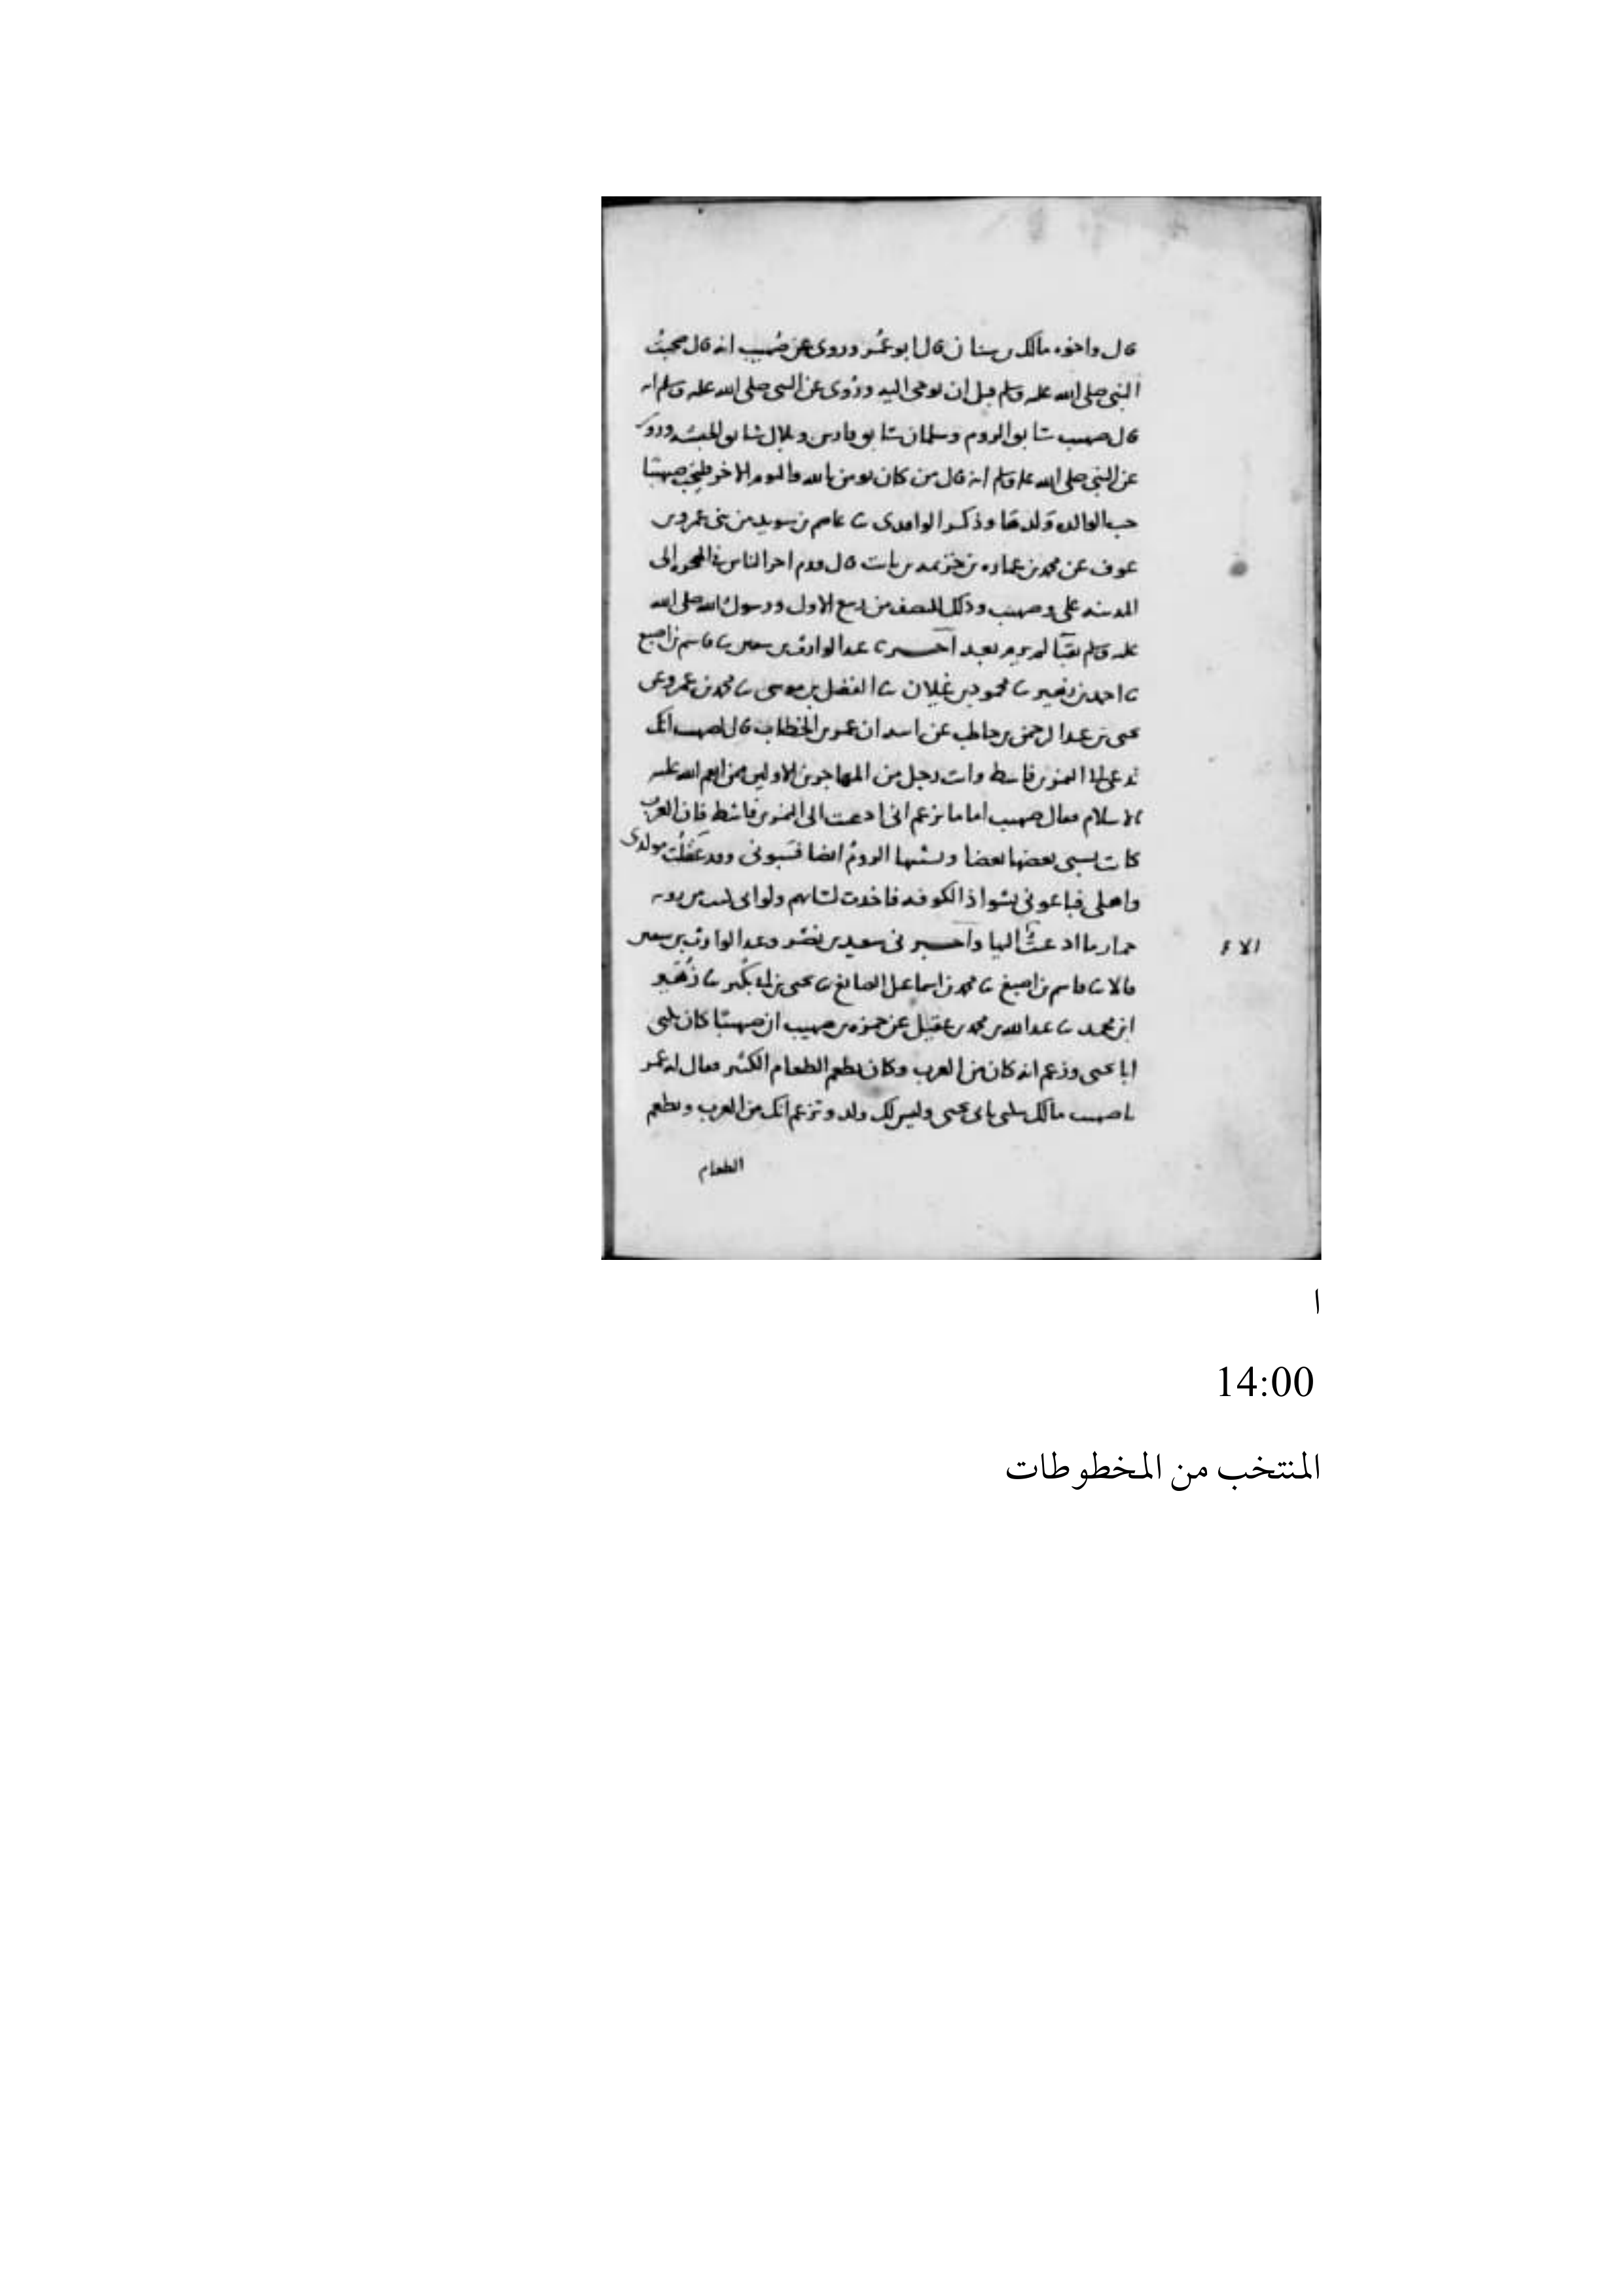 قال واخوه مالك بن سنان قال ابو عمر وروى عن صهيب انه قال صحبت
النبي صلى الله عليه وسلم قبل ان يوحى اليه وروى عن النبي صلى الله عليه وسلم انه
قال صهيب سابق الروم وسلمان سابق فارس وبلال سابق الحبشه وروى
عن النبي صلى الله عليه وسلم انه قال من كان يومن بالله واليوم الاخر فليحب صهيبا
حب الوالده ولدها وذكر الواقدى نا عاصم بن سويد من بنى عمرو بن
عوف عن محمد بن عماره بن خزيمه بن ثابت قال قدم اخر الناس فى الهجره الى
المدينه على وصهيب وذلك للنصف من ربيع الاول ورسول الله صلى الله
عليه وسلم بقبا لم يرم بعد اخبرنا عبد الوارث بن سفين نا قاسم بن اصبغ
نا احمد بن زهير نا محمود بن غيلان نا الفضل بن موسى نا محمد بن عمرو عن
يحيى بن عبد الرحمن بن حاطب عن ابيه ان عمر بن الخطاب قال لصهيب انك
تدعى الى النمر بن قاسط وانت رجل من المهاجرين الاولين ممن انعم الله عليه
بالاسلام فقال صهيب اما ما تزعم انى ادعيت الى النمر بن قاسط فان العرب
كانت يسبى بعضها بعضا وتسبيها الروم ايضا فسبونى وقد عقلت مولدى
واهلى فباعونى بسواد الكوفه فاخذت لسانهم ولو انى كنت من روثه
حمار ما ادعيت الا اليها واخبرنى سعيد بن نصر وعبد الوارث بن سفين
قالا نا قاسم بن اصبغ نا محمد بن اسماعيل الصايغ نا يحيى بن ابى بكير نا زهير
ابن محمد نا عبد الله بن محمد بن عقيل عن حمزه بن صهيب ان صهيبا كان يكنى
ابا يحيى وزعم انه كان من العرب وكان يطعم الطعام الكثير فقال له عمر
يا صهيب مالك تكنى بابى يحيى وليس لك ولد وتزعم انك من العرب وتطعم
الطعام
ا
14:00
المنتخب من المخطوطات